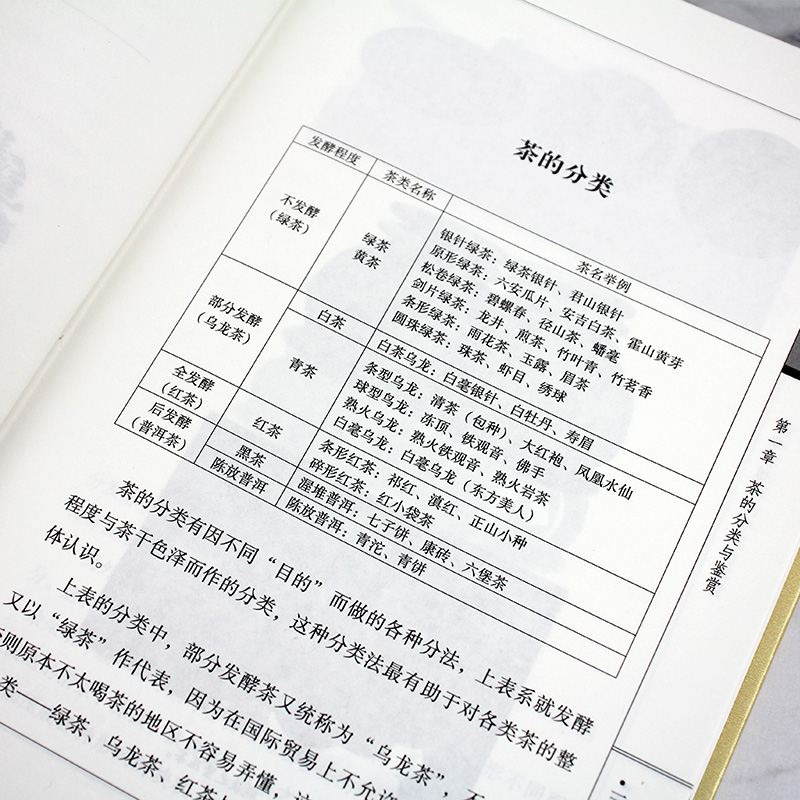 茶的分类
发酵程度 茶类名称 茶名举例
不发酵
（绿茶）
绿茶
黄茶
银针绿茶：绿茶银针、君山银针
原形绿茶：六安瓜片、安吉白茶、霍山黄芽
松卷绿茶：碧螺春、径山茶、蟠毫
剑片绿茶：龙井、煎茶、竹叶青、竹茗香
条形绿茶：雨花茶、玉露、眉茶
圆珠绿茶：珠茶、虾目、绣球
部分发酵
（乌龙茶）
白茶
白茶乌龙：白毫银针、白牡丹、寿眉
青茶
条型乌龙：清茶（包种）、大红袍、凤凰水仙
球型乌龙：冻顶、铁观音、佛手
熟火乌龙：熟火铁观音、熟火岩茶
白毫乌龙：白毫乌龙（东方美人）
全发酵
（红茶）
红茶
条形红茶：祁红、滇红、正山小种
碎形红茶：红小袋茶
后发酵
（普洱茶）
黑茶
渥堆普洱：七子饼、康砖、六堡茶
陈放普洱
陈放普洱：青沱、青饼
茶的分类有因不同“目的”而做的各种分法，上表系就发酵
程度与茶干色泽而作的分类，这种分类法最有助于对各类茶的整
体认识。
上表的分类中，部分发酵茶又统称为“乌龙茶”，不
又以“绿茶”作代表，因为在国际贸易上不允许
则原本不太喝茶的地区不容易弄懂，这
类——绿茶、乌龙茶、红茶
第一章 茶的分类与鉴赏